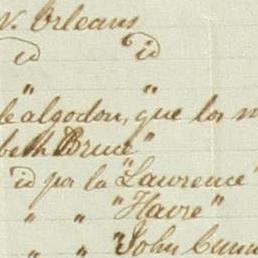 N. Orleans
id id
"
de algodon, que los
beth Bruce"
id por la "Lawrence"
" " "Havre"
" " "John